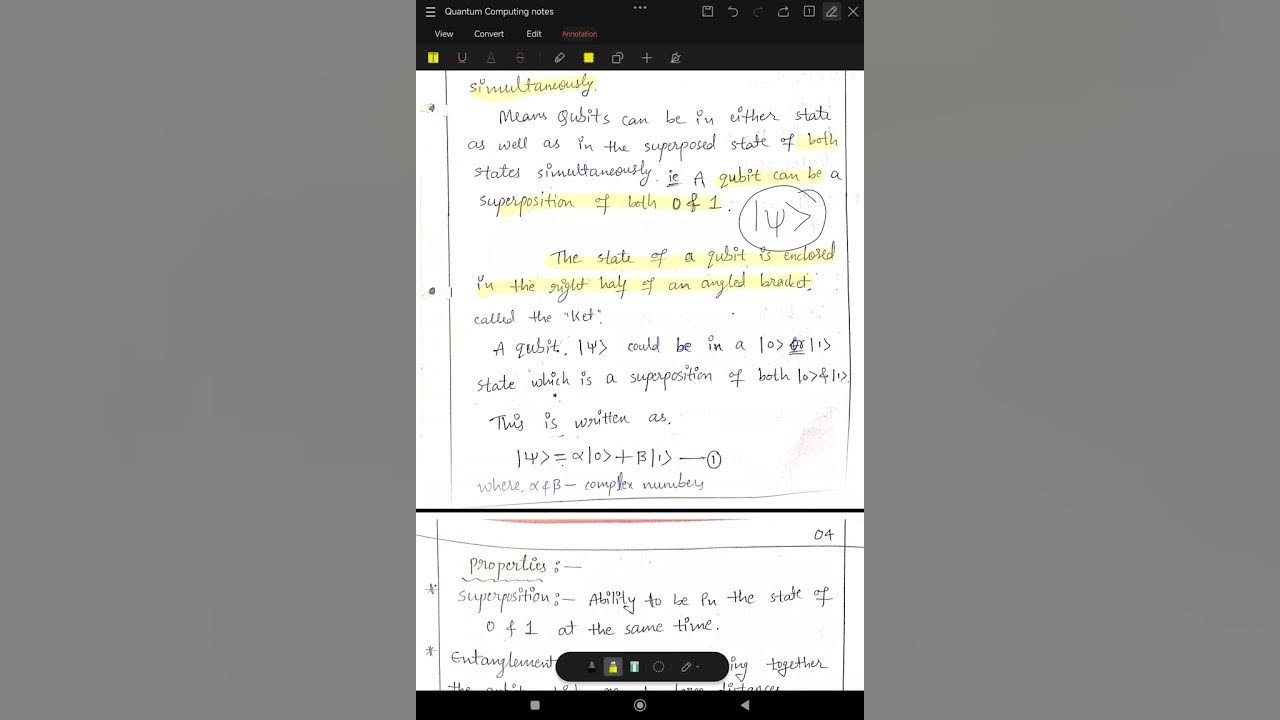 Quantum Computing notes
View Convert Edit Annotation
simultaneously.
Means Qubits can be in either state
as well as in the superposed state of both
states simultaneously. ie A qubit can be a
superposition of both 0 & 1.
|ψ>
The state of a qubit is enclosed
in the right half of an angled bracket,
called the "Ket".
A qubit, |ψ> could be in a |0> or |1>
state which is a superposition of both |0> & |1>.
This is written as,
|ψ> = α|0> + β|1> — ①
where, α & β – complex numbers
04
Properties :—
* Superposition :— Ability to be in the state of
0 & 1 at the same time.
* Entanglement together
the distances